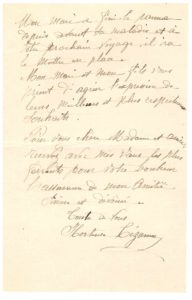 Mon mari a fini le panneau
depuis avant sa maladie et à
votre prochain voyage, il va
le mettre en place.
Mon mari et mon fils vous
prient d'agréer l'expression de
leurs, meilleurs et plus respectueux
souhaits.
Pour vous chère Madame et
recevez avec mes vœux les plus
fervents pour votre bonheur
l'assurance de mon amitié
sincère et dévouée.
Toute à vous
Hortense Cézanne